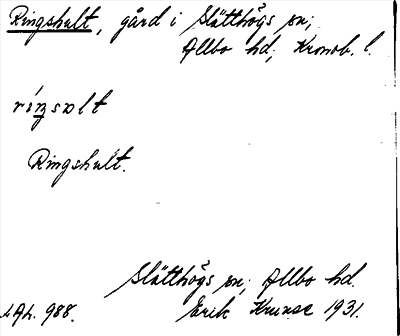 Ringshult, gård i Slätthögs sn;
Allbo hd, Kronob. l.
Ringshult.
Slätthögs sn; Allbo hd.
988. Erik 1931.